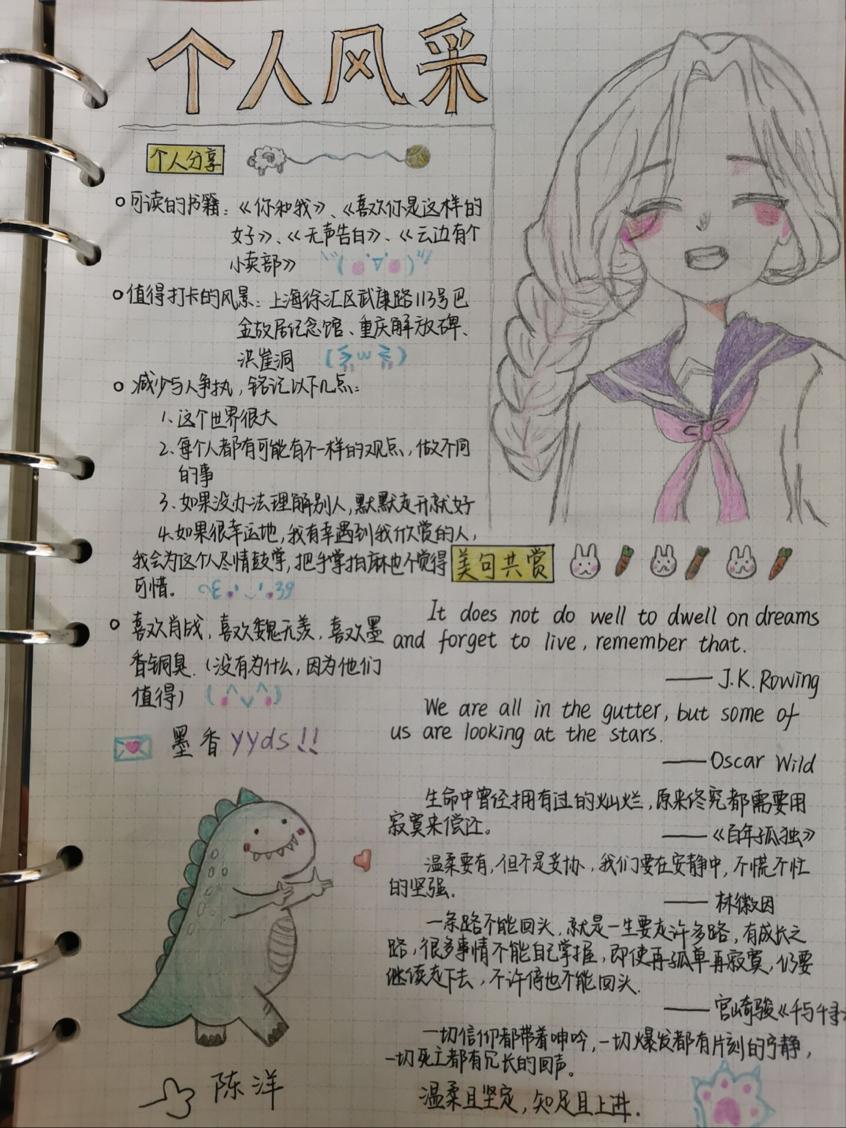 个人风采
个人分享
可读的书籍：《你和我》、《喜欢你是这样的
女子》、《无声告白》、《云边有个
小卖部》
值得打卡的风景：上海徐汇区武康路113号巴
金故居纪念馆、重庆解放碑、
洪崖洞
减少与人争执，铭记以下几点：
1.这个世界很大
2.每个人都有可能有不一样的观点，做不同
的事
3.如果没办法理解别人，默默走开就好
4.如果很幸运地，我有幸遇到我欣赏的人，
我会为这个人尽情鼓掌，把手掌拍麻也不觉得
可惜。
喜欢肖战，喜欢魏无羡，喜欢墨
香铜臭.（没有为什么，因为他们
值得）
墨香yyds!!
陈洋
美句共赏
It does not do well to dwell on dreams
and forget to live, remember that.
——J.K.Rowing
We are all in the gutter, but some of
us are looking at the stars.
——Oscar Wild
生命中曾经拥有过的灿烂，原来终究都需要用
寂寞来偿还。
——《百年孤独》
温柔要有，但不是妥协，我们要在安静中，不慌不忙
的坚强.
——林徽因
一条路不能回头，就是一生要走许多路，有成长之
路，很多事情不能自己掌握，即使再孤单再寂寞，仍要
继续走下去，不许停也不能回头.
——宫崎骏《千与千寻
一切信仰都带着呻吟，一切爆发都有片刻的宁静，
一切死亡都有冗长的回声。
温柔且坚定，知足且上进.